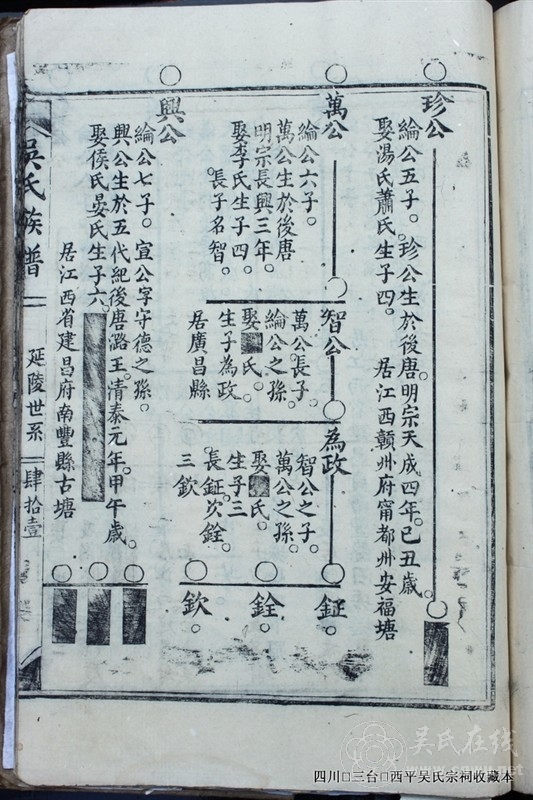 珍公
綸公五子。珍公生於後唐。明宗天成四年。己丑歲。
娶湯氏蕭氏。生子四。
居江西贛州府甯都州安福塘
萬公
綸公六子。
萬公生於後唐
明宗長興三年。
娶李氏生子四。
長子名智。
智公
萬公長子。
綸公之孫。
娶氏。
生子為政
居廣昌縣
為政
智公之子。
萬公之孫。
娶氏。
生子三
長鉦次銓。
三欽
鉦。
銓。
欽。
興公
綸公七子。宣公字守德之孫。
興公生於五代紀後唐潞王。清泰元年。甲午歲。
娶侯氏晏氏生子六。
居江西省建昌府南豐縣古塘
吳氏族譜
延陵世系
肆拾壹
吴氏在线
四川□三台□西平吴氏宗祠收藏本